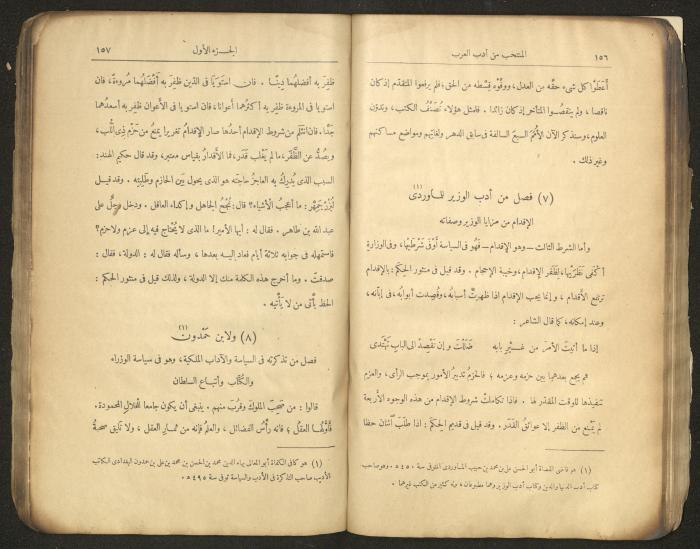 ١٥٦
المنتخب من أدب العرب
أعطوا كل شيء حقه من العدل، ووفَّوه قِسْطه من الحق؛ فلم يرفعوا المتقدّم إذ كان
ناقصا، ولم ينقصوا المتأخر إذ كان زائدا. فلمثل هؤلاء تُصنَّفُ الكتب، وتدوّن
العلوم، وسنذكر الآن الأمم السبع السالفة في سابق الدهر ولغاتهم ومواضع مساكنهم
وغير ذلك .
(٧) فصل من أدب الوزير للماوردى(١)
الإقدام من مزايا الوزير وصفاته
وأما الشرط الثالث – وهو الإقدام – فهُو فى السياسة أوْفَى شرطَيْها، وفى الوزارة
أكْفَى نظَريْها، لظَفَر الإقدام، وخيبة الإحجام. وقد قيل فى منثور الحِكَم: بالإقدام
ترتفع الأقدام، وإنما يجب الإقدام اذا ظهرتْ أسبابُه، وقُصدت أبوابُه، فى إبّانه،
وعند إمكانه، كما قال الشاعر :
إذا ما أتيتَ الأمرَ من غَيْرِ بابه ضَلَلْتَ و إن تَقصِدْ الى البابِ تَهْتَدى
ثم يجمع بعدهما بين حزمه وعزمه ؛ فالحزم تدبيرُ الأمور بموجب الرأى، والعزم
تنفيذها للوقت المقدّر لها . فاذا تكاملتْ شروط الإقدام من هذه الوجوه الأربعة
لم يمنع من الظفر إلا عوائقُ القَدَر. وقد قيل فى قديم الحِكم : اذا طلَبَ اثنان حظا
(١) هو قاضى القضاة أبو الحسن على بن محمد بن حبيب المـاوردى المتوفى سنة ٤٥٠ ه. وهو صاحب
كتاب أدب الدنيا والدين وكتاب أدب الوزير وهما مطبوعان ، وله كثير من الكتب غيرهما .
الجزء الأول
١٥٧
ظفِر به أفضلهُما دِينًا . فان استوَيَا فى الدين ظفِر به أفضلهُما مُروءةً، فان
استويا فى المروءة ظفِر به أكثرُهما أعوانا، فان استويا فى الأعوان ظفِر به أسعدُهما
جَدًّا. فان انثلم من شروط الإقدام أحدُها صار الإقدامُ تغريرا يمنعُ من حَزْم ذِى اللُّب،
ويصُدُّ عن الظَّفَر، ما لم يَغْلِب قدَر، فما الأقدارُ بقياس معتبر، وقد قال حكيم الهند:
السبب الذى يُدرِك به العاجزُ حاجتَه هو الذى يحول بين الحازم وطَلِبَتِه. وقد قيـل
لبُزُرْجِمِهْر : ما أعجبُ الأشياء؟ قال: نُجْحُ الجاهل وإكداء العاقل . ودخل رجلٌ على
عبد الله بن طاهر، فقال له : أيها الأمير! ما الذى لا يُحتاج فيه إلى عزم ولا حزم؟
فاستمهله فى جوابه ثلاثة أيام فعاد إليه بعدها، وسأله فقال له : الدولة، فقال :
صدقتَ . وما أخرج هذه الكلمة منك إلا الدولة، ولذلك قيل فى منثور الحِكم :
الحظ يأتى من لا يأتيه .
(٨) ولابن حَمْدون(١)
فصل من تذكرته فى السياسة والآداب الملكية، وهو فى سياسة الوزراء
والكُتّاب وأتباع السلطان
قالوا : من صَحِبَ الملوكَ وقرُبَ منهم، ينبغى أن يكون جامعا للخلال المحمودة.
فأوّلها العقلُ ؛ فانه رأْسُ الفضائل، والعلمُ فإنه من ثمار العقل، ولا تليق صحبةُ
(١) هو كافى الكفاة أبو المعالى بهاء الدين محمد بن الحسن بن محمد بن على بن حمدون البغدادى الكاتب
الأديب صاحب التذكرة فى الأدب والسياسة توفى سنة ٤٩٥ ه